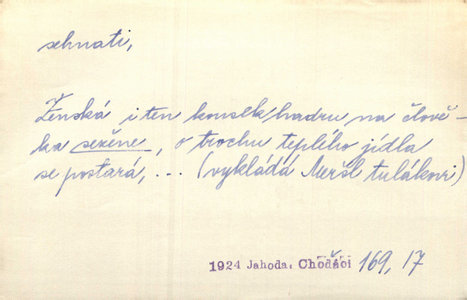 sehnati,
Ženská i ten kousek hadru na člově-
ka sežene, o trochu teplého jídla
se postará, ... (vykládá Meršl tulákovi)
1924 Jahoda: Choďáci 169, 17